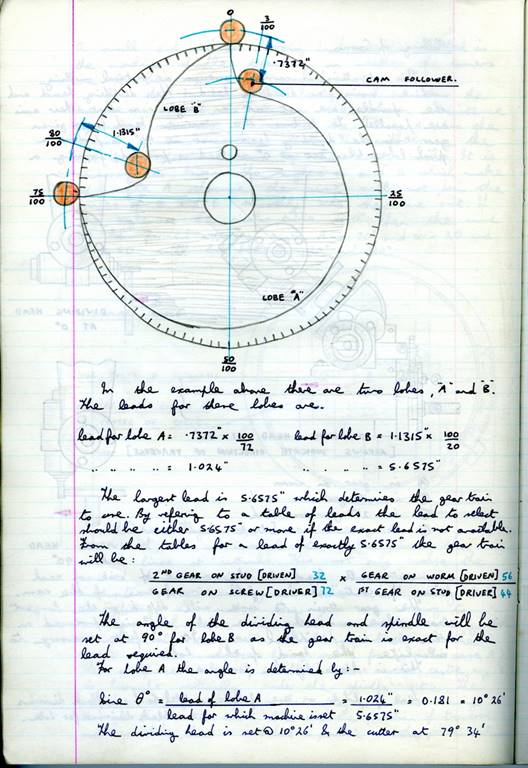 0
3/100
.7372"
CAM FOLLOWER.
LOBE "B"
80/100
1.1315"
75/100
25/100
LOBE "A"
50/100
In the example above there are two lobes, "A" and "B".
The leads for these lobes are.
lead for lobe A = .7372" x 100/72 lead for lobe B = 1.1315" x 100/20
" " " " = 1.024" " " " " = 5.6575"
The largest lead is 5.6575" which determines the gear train
to use. By refering to a table of leads the lead to select
should be either 5.6575" or more if the exact lead is not available.
From the tables for a lead of exactly 5.6575" the gear train
will be:
2ND GEAR ON STUD [DRIVEN] 32 x GEAR ON WORM [DRIVEN] 56
GEAR ON SCREW [DRIVER] 72 1ST GEAR ON STUD [DRIVER] 44
The angle of the dividing head and spindle will be
set at 90° for lobe B as the gear train is exact for the
lead required.
For Lobe A the angle is determined by:-
Sine θ° = lead of lobe A = 1.024" = 0.181 = 10° 26'
lead for which machine is set 5.6575"
The dividing head is set @ 10° 26' & the cutter at 79° 34'